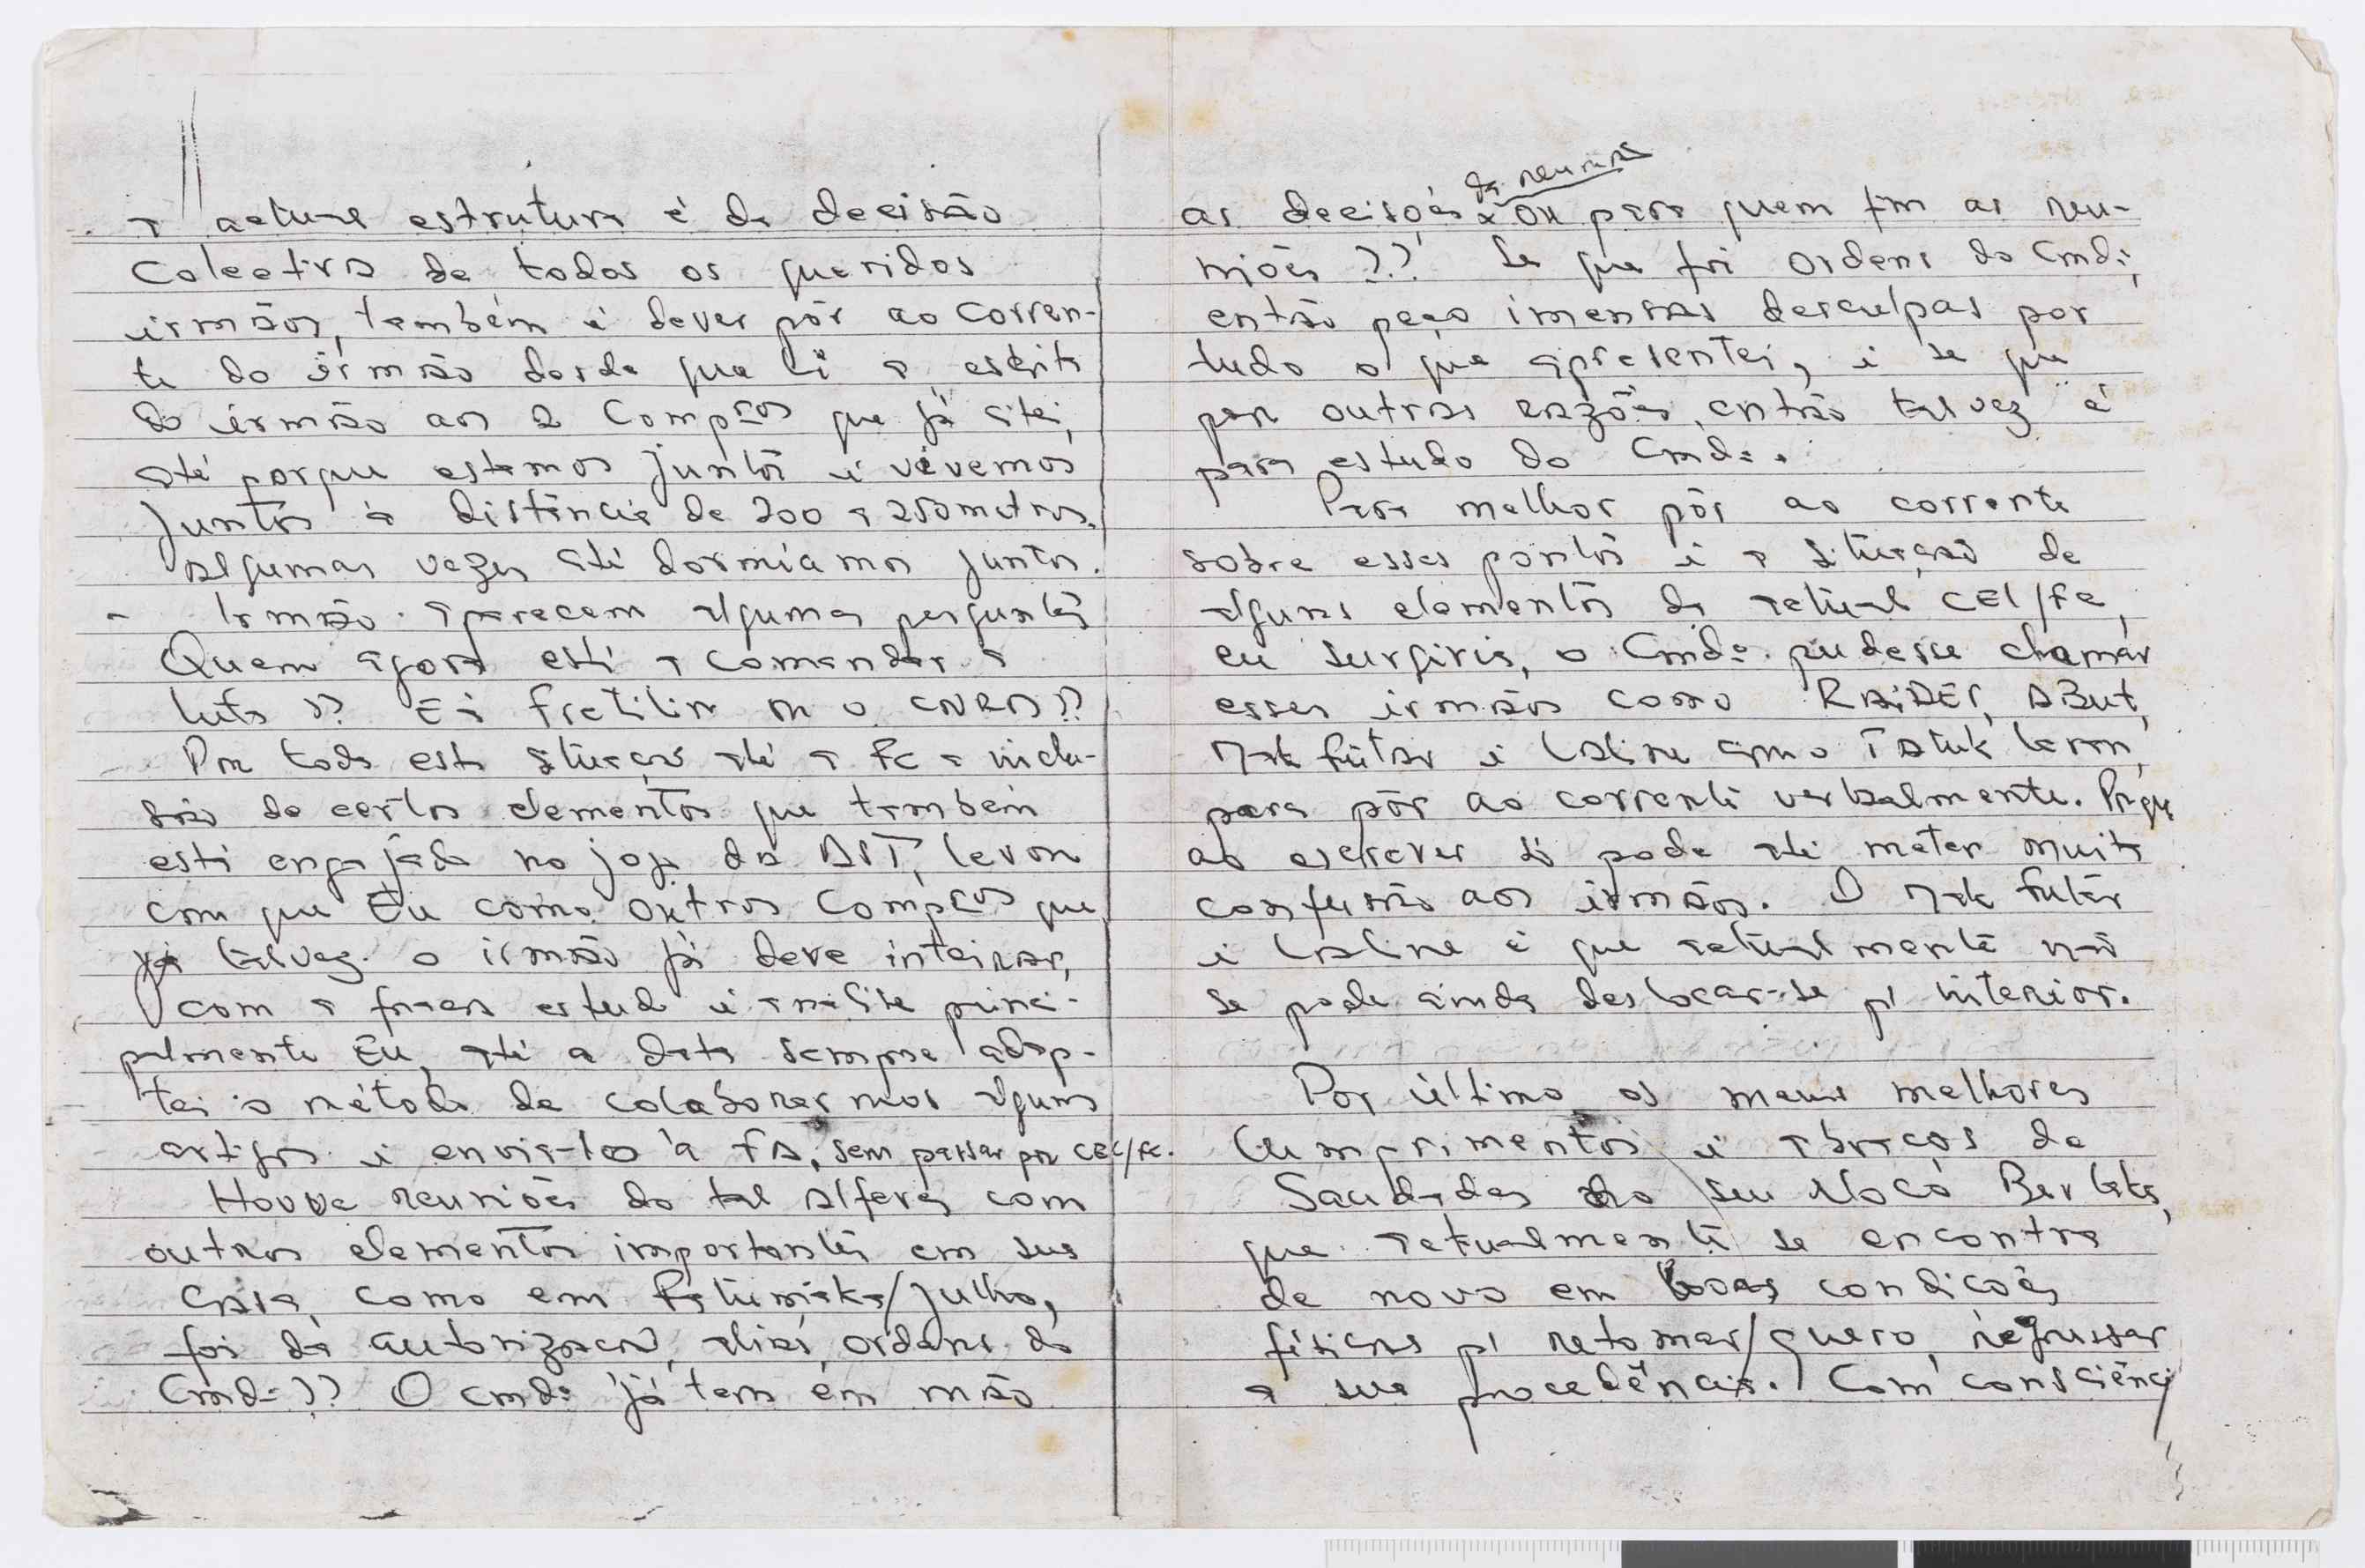 a actual estrutura é da decisão
Colectiva de todos os queridos
irmãos, também é dever pôr ao corren-
te do irmão desde que li a escrita
do irmão aos 2 Compros que já citei,
até porque estamos juntos e vivemos
juntos à distância de 200 a 250 metros.
Algumas vezes até dormíamos juntos.
- Irmão aparecem algumas perguntas
Quem agora está a comandar a
luta ?? É a fretilin ou o CNRM??
Por toda esta situação até a FC a inclu-
são de certos elementos que também
está engajada no jogo da AST, levou
com que Eu como outros Compros que
já talvez o irmão já deve inteirar,
com a fraca estudo e análise princi-
palmente Eu, até a data sempre adop-
tei o método de colaborarmos alguns
artigos e enviá-los à FA, sem passar por CEL/FC.
Houve reuniões do tal Alferes com
outros elementos importantes em sua
Casa, como em Fatumaka/Julho,
foi da autorização, aliás, ordens do
Cmdt ?? O cmdt já tem em mão
as decisões da reunião ou para quem fim as reu-
niões ??? Se que foi ordens do Cmdt,
então peço imensas desculpas por
tudo o que apresentei, e se que
por outras razões, então talvez é
para estudo do Cmdt.
Para melhor pôr ao corrente
sobre esses pontos e a situação de
alguns elementos da actual CEL/FC,
eu surgiria, o Cmdt. pudesse chamar
esses irmãos como RAIDER, ABut,
Mak futar e Laline como Tatuk leron,
para pôr ao corrente verbalmente. Porque
ao escrever só pode até meter muita
confusão aos irmãos. O Mak futar
e Laline é que actualmente não
se pode ainda deslocar-se p/ interior.
Por último os meus melhores
Cumprimentos e abraços de
Saudades do seu Mocó Ber Laka,
que actualmente se encontra
de novo em boas condições
físicas p/ retomar/quero, regressar
a sua procedência. Com consciênci